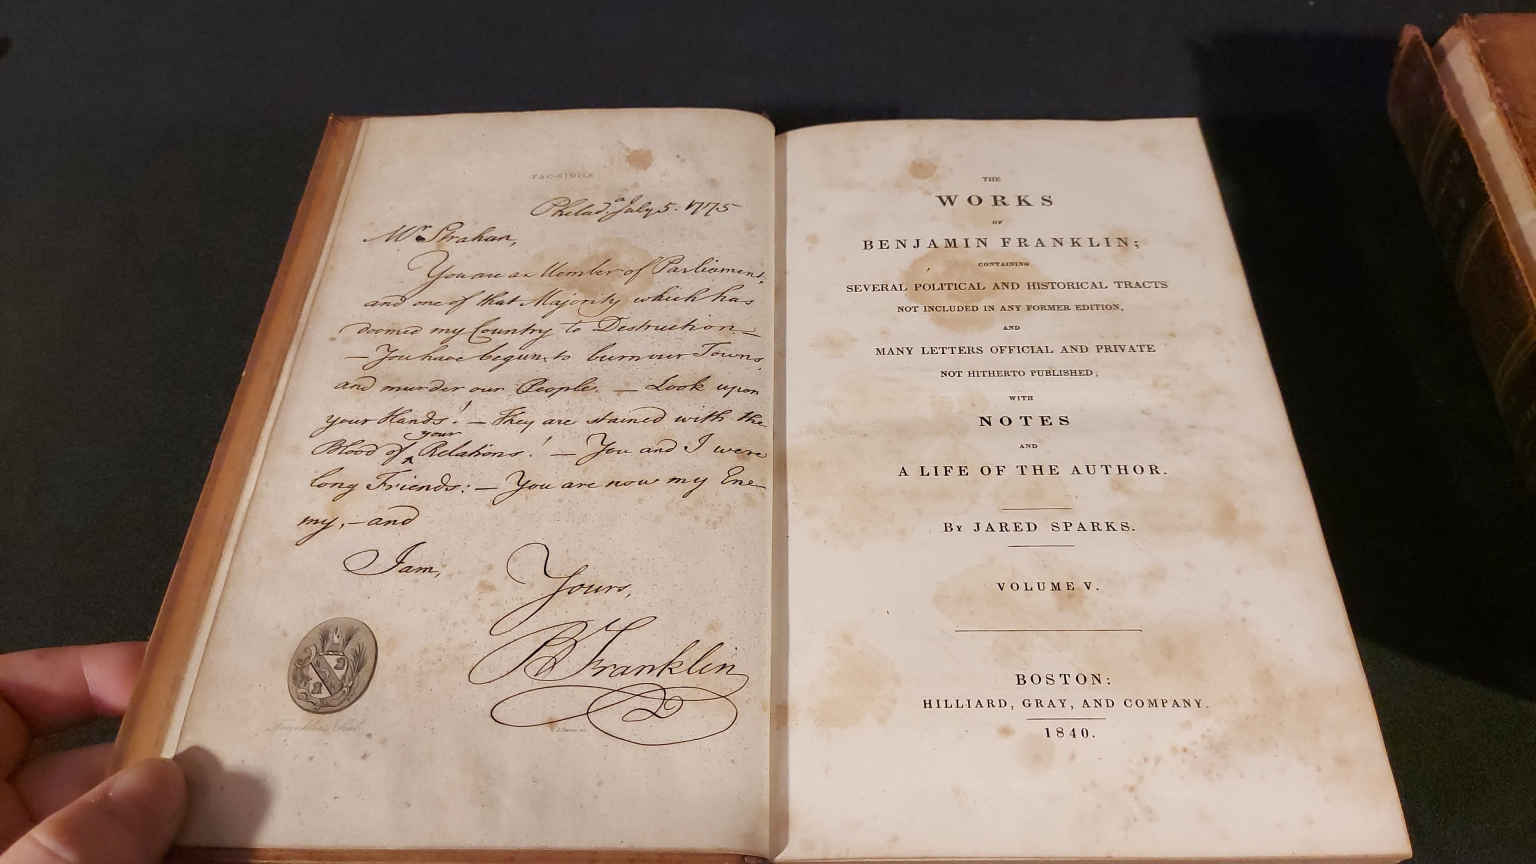 FAC-SIMILE
Philada July 5. 1775
Mr. Strahan,
You are a Member of Parliament,
and one of that Majority which has
doomed my Country to Destruction.—
—You have begun to burn our Towns,
and murder our People. — Look upon
your Hands! — They are stained with the
Blood of your Relations! — You and I were
long Friends: — You are now my Ene-
my, — and
I am,
Yours,
B Franklin
THE
WORKS
OF
BENJAMIN FRANKLIN;
CONTAINING
SEVERAL POLITICAL AND HISTORICAL TRACTS
NOT INCLUDED IN ANY FORMER EDITION,
AND
MANY LETTERS OFFICIAL AND PRIVATE
NOT HITHERTO PUBLISHED;
WITH
NOTES
AND
A LIFE OF THE AUTHOR.
By JARED SPARKS.
VOLUME V.
BOSTON:
HILLIARD, GRAY, AND COMPANY.
1840.